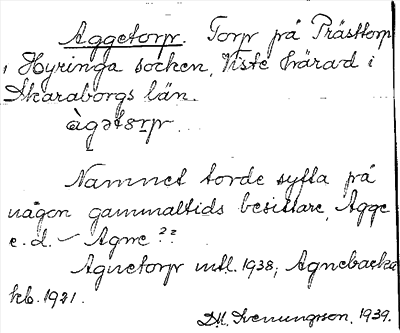 Aggetorp. Torp på Prästtorp
i Hyringa socken, Viste härad i
Skaraborgs län.
àgətɷrp
Namnet torde syfta på
någon gammaltids besittare, Agge
e. d. – Agne ??
Agnetorp mtl. 1938; Agnebacka
kb. 1921.
D. A. Svenungson, 1939.